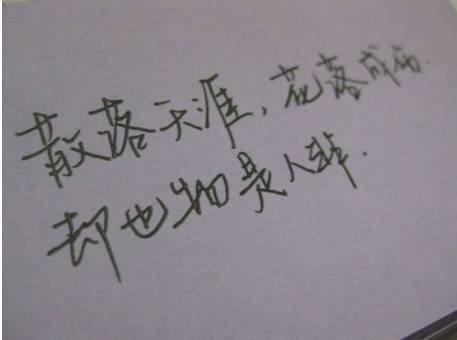 散落天涯,花落成伤.
却也物是人非.